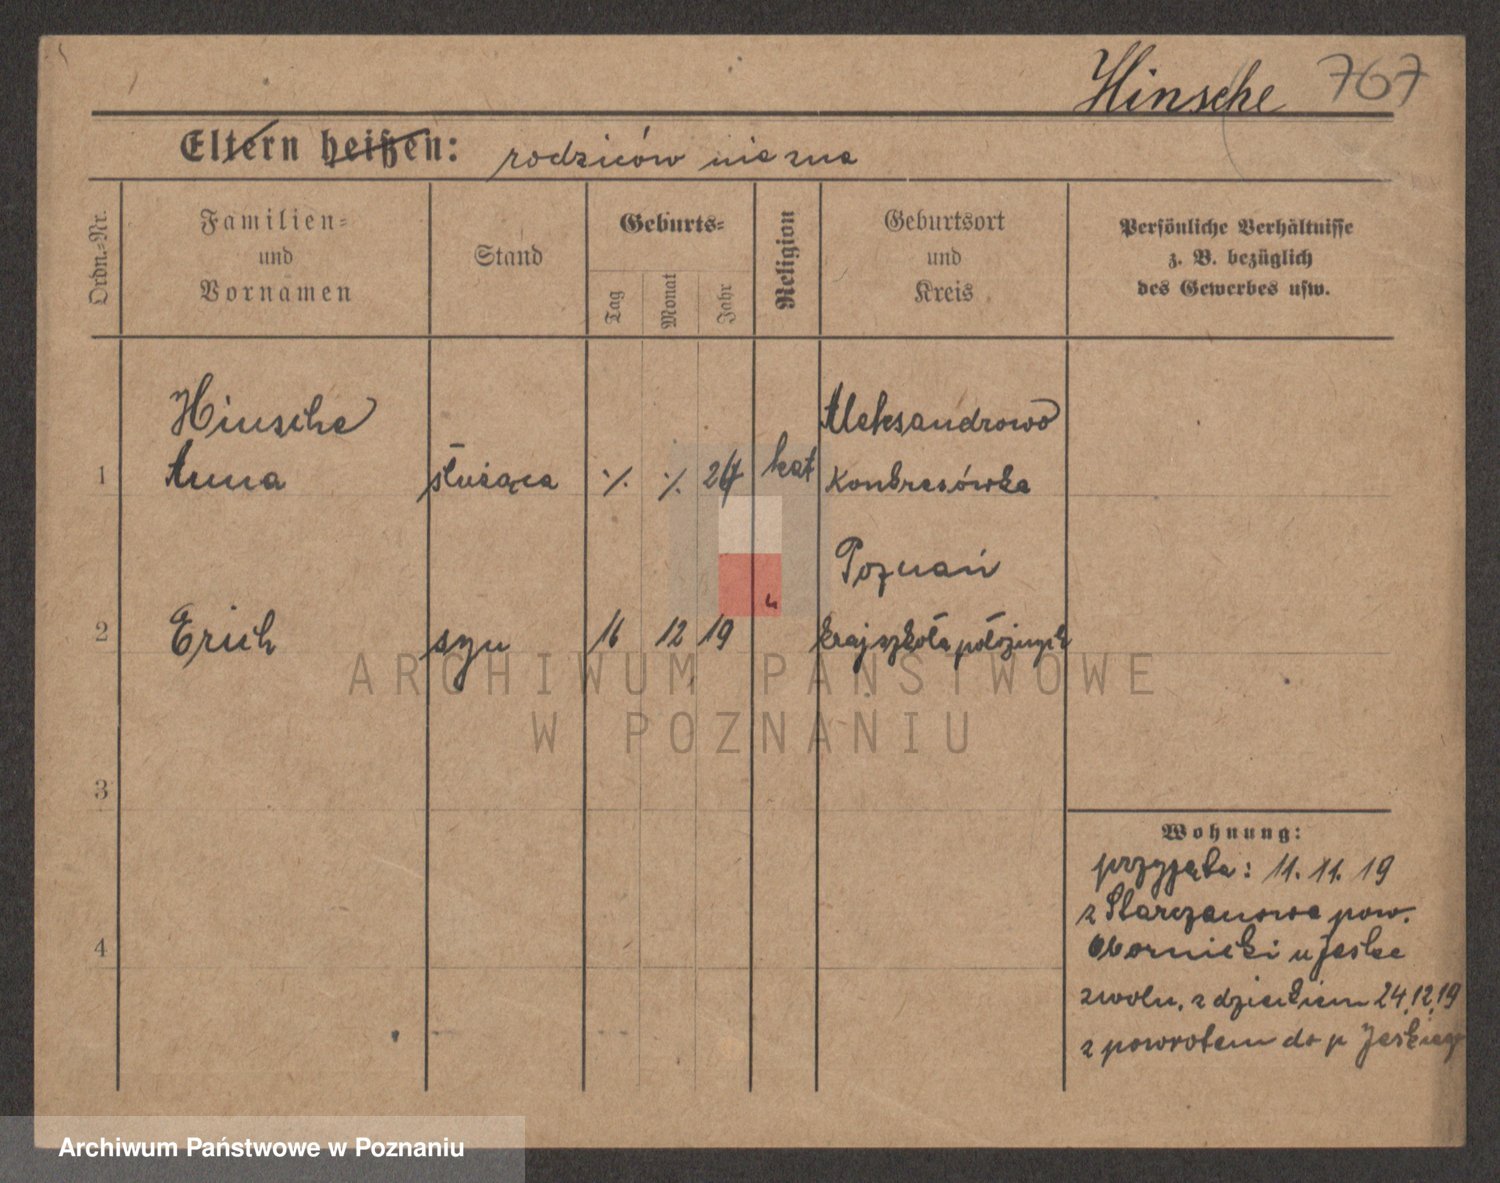 Hinsche 767
Eltern heißen: rodziców nie zna
Ordn.-Nr.
Familien-
und
Vornamen
Stand
Geburts-
Tag
Monat
Jahr
Religion
Geburtsort
und
Kreis
Persönliche Verhältnisse
z. B. bezüglich
des Gewerbes usw.
Hinsche
Aleksandrowo
1 Anna służąca ./. ./. kat Konkresówka
Poznań
2 Erich syn 16 12 19 " kraj szkoła położnych
3
4
Wohnung:
przyjęta: 11.11.19
z Starczanowa pow.
Obornicki u Jeske
zwoln. z dzieckiem 24.12.19
z powrotem do p Jeskiego
ARCHIWUM PAŃSTWOWE
W POZNANIU
Archiwum Państwowe w Poznaniu